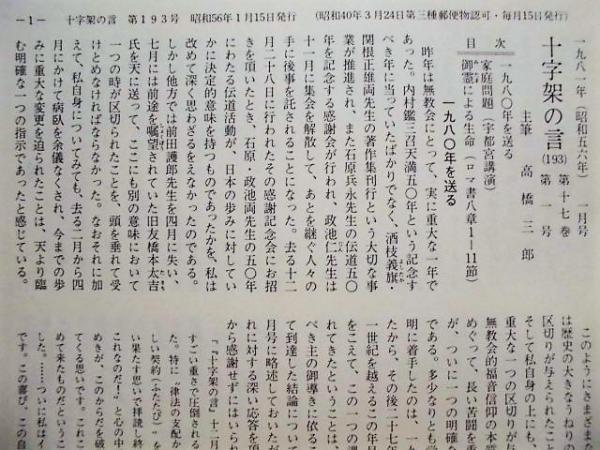 －1－　十字架の言　第１９３号　昭和56年１月15日発行　（昭和40年３月24日第三種郵便物認可・毎月15日発行）
一九八一年（昭和五六年）　一月号
十字架の言 (193) 第十七巻 第一号
主筆　高橋三郎
目次
一九八〇年を送る
家庭問題（宇都宮講演）
御霊による生命（ロマ書八章1―11節）
一九八〇年を送る
昨年は無教会にとって、実に重大な一年で
あった。内村鑑三召天満五〇年という記念す
べき年に当っていたばかりでなく、酒枝義旗
関根正雄両先生の著作集刊行という大切な事
業が推進され、また石原兵永先生の伝道五〇
年を記念する感謝会が行われ、政池仁先生は
十一月に集会を解散して、あとを継ぐ人々の
手に後事を託されることになった。去る十二
月二十八日に行われたその感謝記念会にお招
きを頂いたとき、石原・政池両先生の五〇年
にわたる伝道活動が、日本の歩みに対してい
かに決定的意味を持つものであったかを、私は
改めて深く思わざるをえなかったのである。
しかし他方では前田護郎先生を四月に失い、
七月には前途を嘱望されていた日友橋本太吉
氏を天に送って、ここにも別の意味において
一つの時が区切られたことを、頭を垂れて受
けとめなければならなかった。なおそれに加
えて、私自身についてみても、去る二月から四
月にかけて病臥を余儀なくされ、今までの歩
みに重大な変更を迫られたことは、天より臨
む明確な一つの指示であったと感じている。
このようにさまざまな
は歴史の大きなうねりの
区切りが与えられたこと
そして私自身の上にも、
重大な一つの区切りが与
無教会的福音信仰の本質
めぐって、長い苦闘を重
が、ついに一つの明確な
である。多少なりとも学
明に着手したのは、一九
たから、その後二十七年
一世紀を越えるこの年月
をこえて、この一つの課
れてきたということは、
べき主の御導きに依るこ
て到達した結論について
月号に略述しておいたが
れに対する深い応答を頂
から感謝せずにはいられ
「『十字架の言』十二月
すごい重さで圧倒される
た。特に〝律法の支配か
しい契約（ふたたび）〟
い果たす思いで拝読し終
これなのだ！」と心の中
めきが、このからだを破
てくる思いです。これこ
めて来たものだというこ
した。……ついに私はイ
です。この喜び、この自